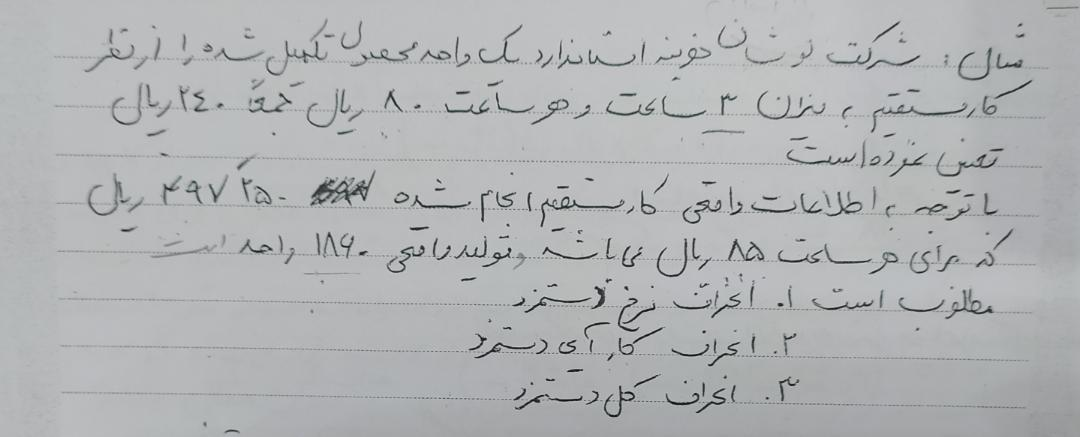 مثال : شرکت نوشان هزینه استاندارد یک واحد محصول تکمیل شده را از نظر
کار مستقیم به میزان ۳ ساعت و هر ساعت ۸۰ ریال جمعاً ۲۴۰ ریال
تعیین نموده است
با توجه به اطلاعات واقعی کار مستقیم انجام شده ۴۹۷۲۵۰ ریال
که برای هر ساعت ۸۵ ریال می باشد و تولید واقعی ۱۸۶۰ واحد است
مطلوب است ۱. انحراف نرخ دستمزد
۲. انحراف کارآی دستمزد
۳. انحراف کل دستمزد